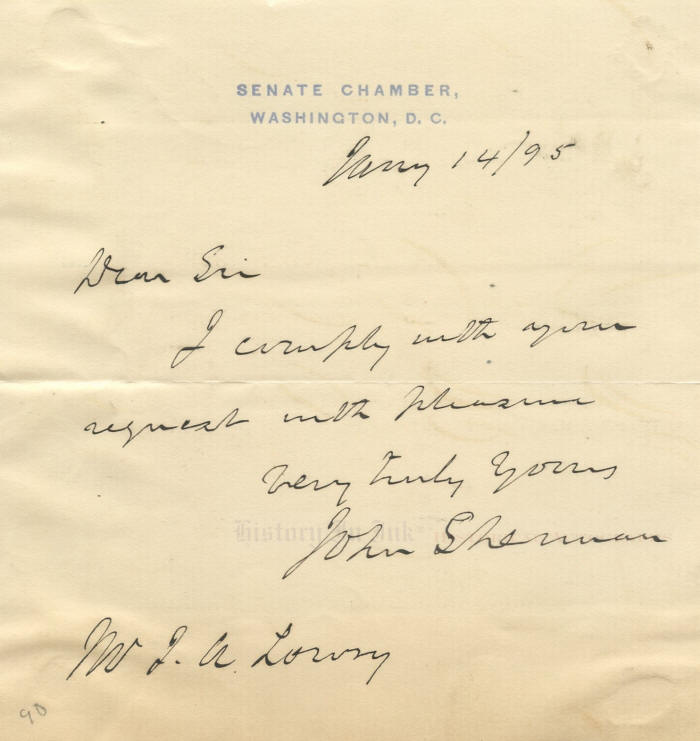 SENATE CHAMBER,
WASHINGTON, D. C.
Jany 14/95
Dear Sir
I comply with your
request with pleasure
Very truly Yours
History In Ink
John Sherman
Mr J. A. Lowry
90